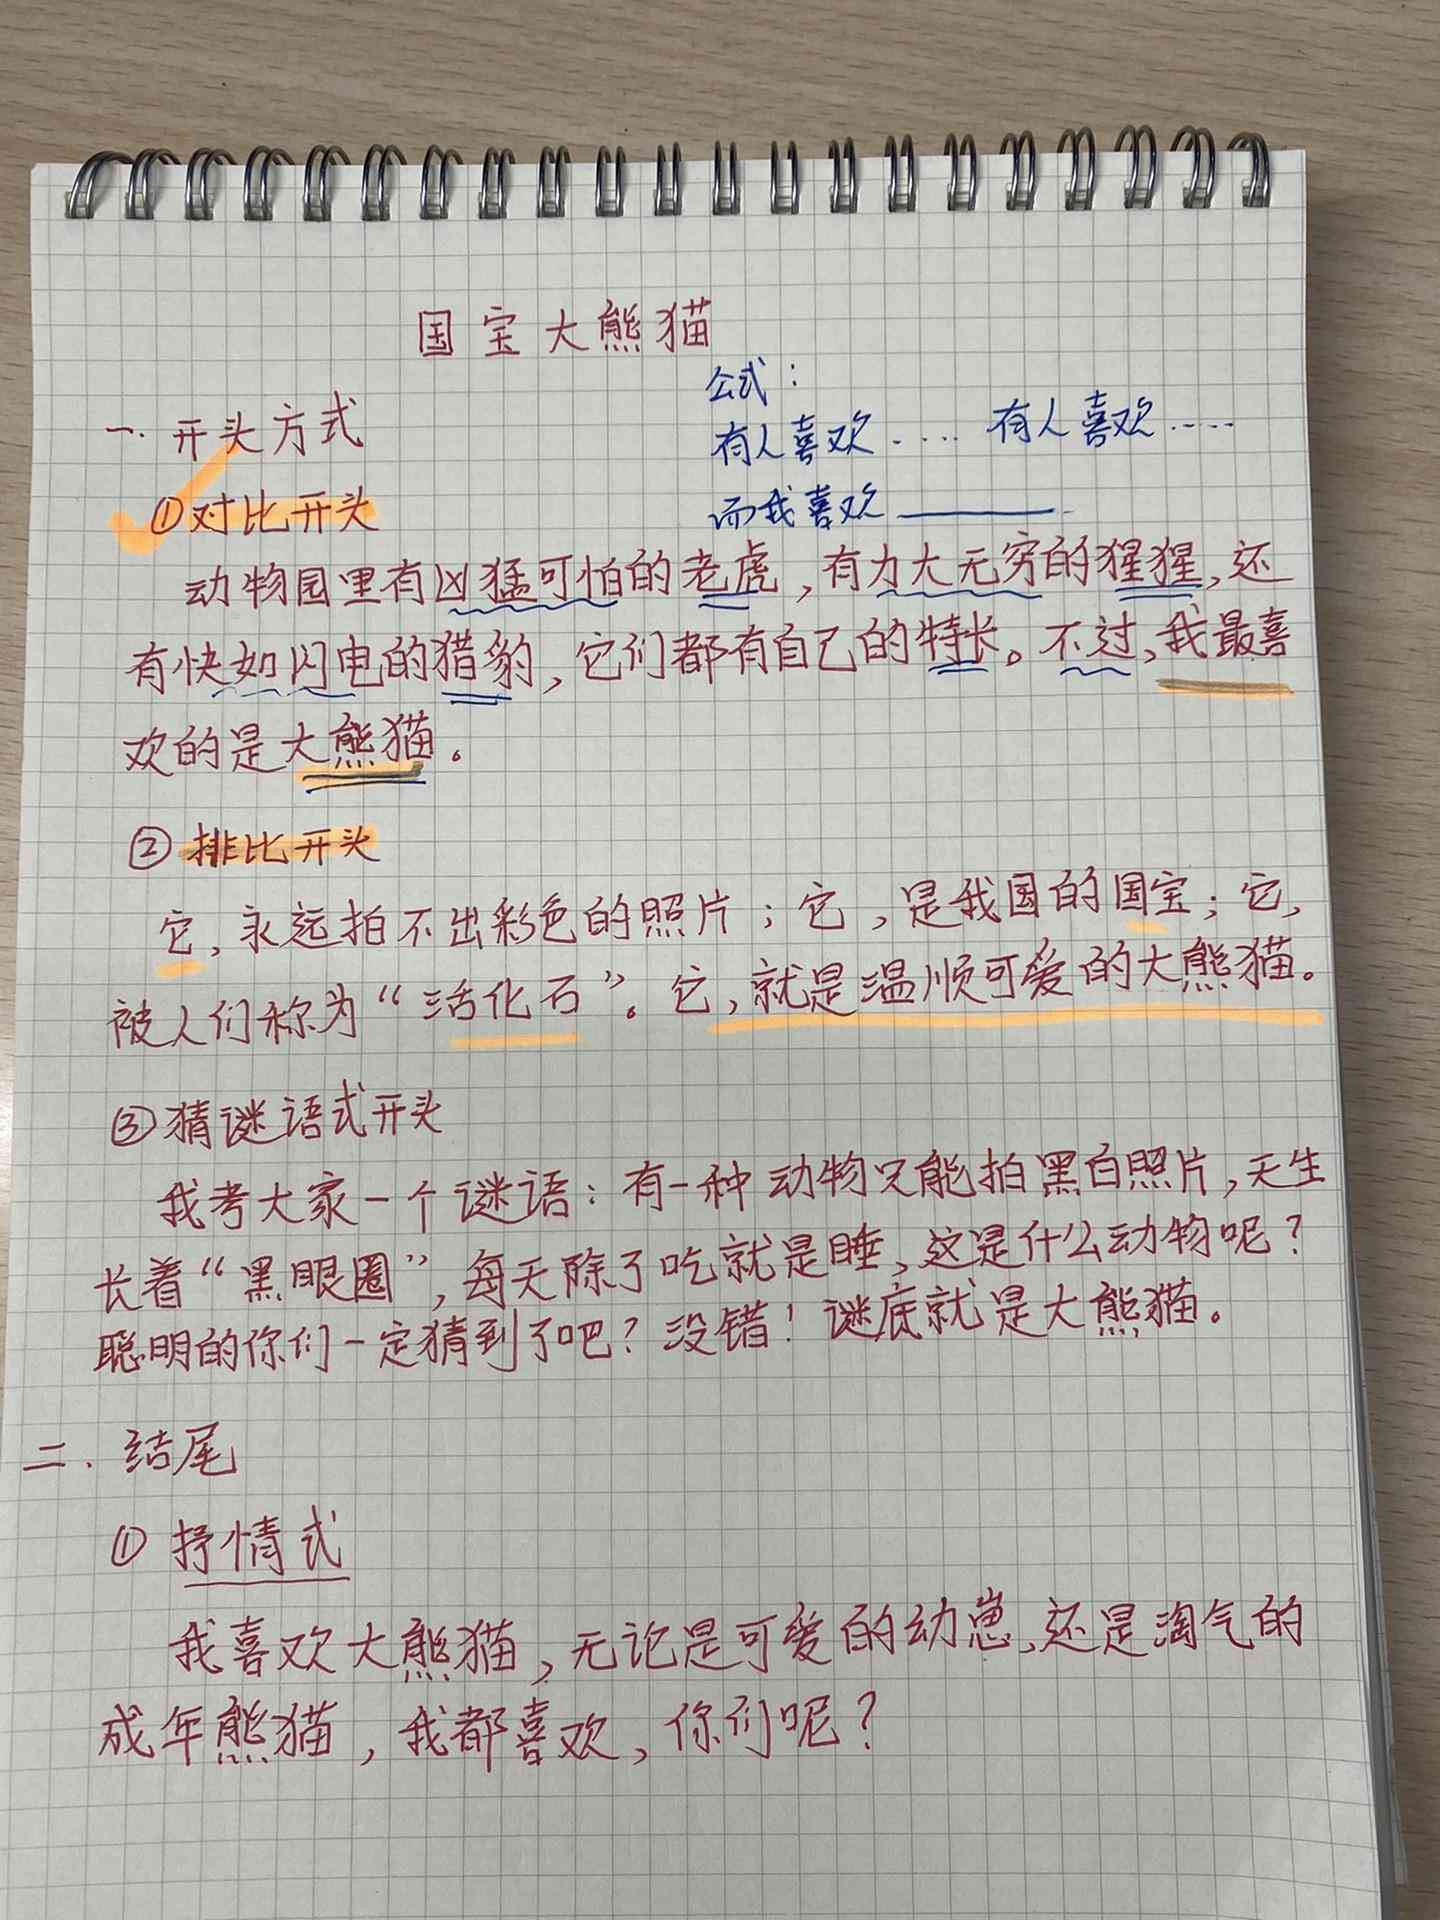 国宝大熊猫
公式：
一.开头方式
有人喜欢..... 有人喜欢.....
①对比开头
而我喜欢______
动物园里有凶猛可怕的老虎，有力大无穷的猩猩，还
有快如闪电的猎豹，它们都有自己的特长。不过，我最喜
欢的是大熊猫。
②排比开头
它，永远拍不出彩色的照片；它，是我国的国宝；它，
被人们称为“活化石”。它，就是温顺可爱的大熊猫。
③猜谜语式开头
我考大家一个谜语：有一种动物只能拍黑白照片，天生
长着“黑眼圈”，每天除了吃就是睡，这是什么动物呢？
聪明的你们一定猜到了吧？没错！谜底就是大熊猫。
二．结尾
①抒情式
我喜欢大熊猫，无论是可爱的幼崽、还是淘气的
成年熊猫，我都喜欢，你们呢？